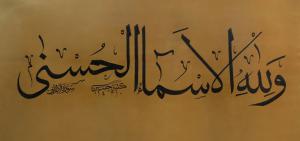 وَلِلّٰهِ الْاَسْمَاءُ الْحُسْنٰى